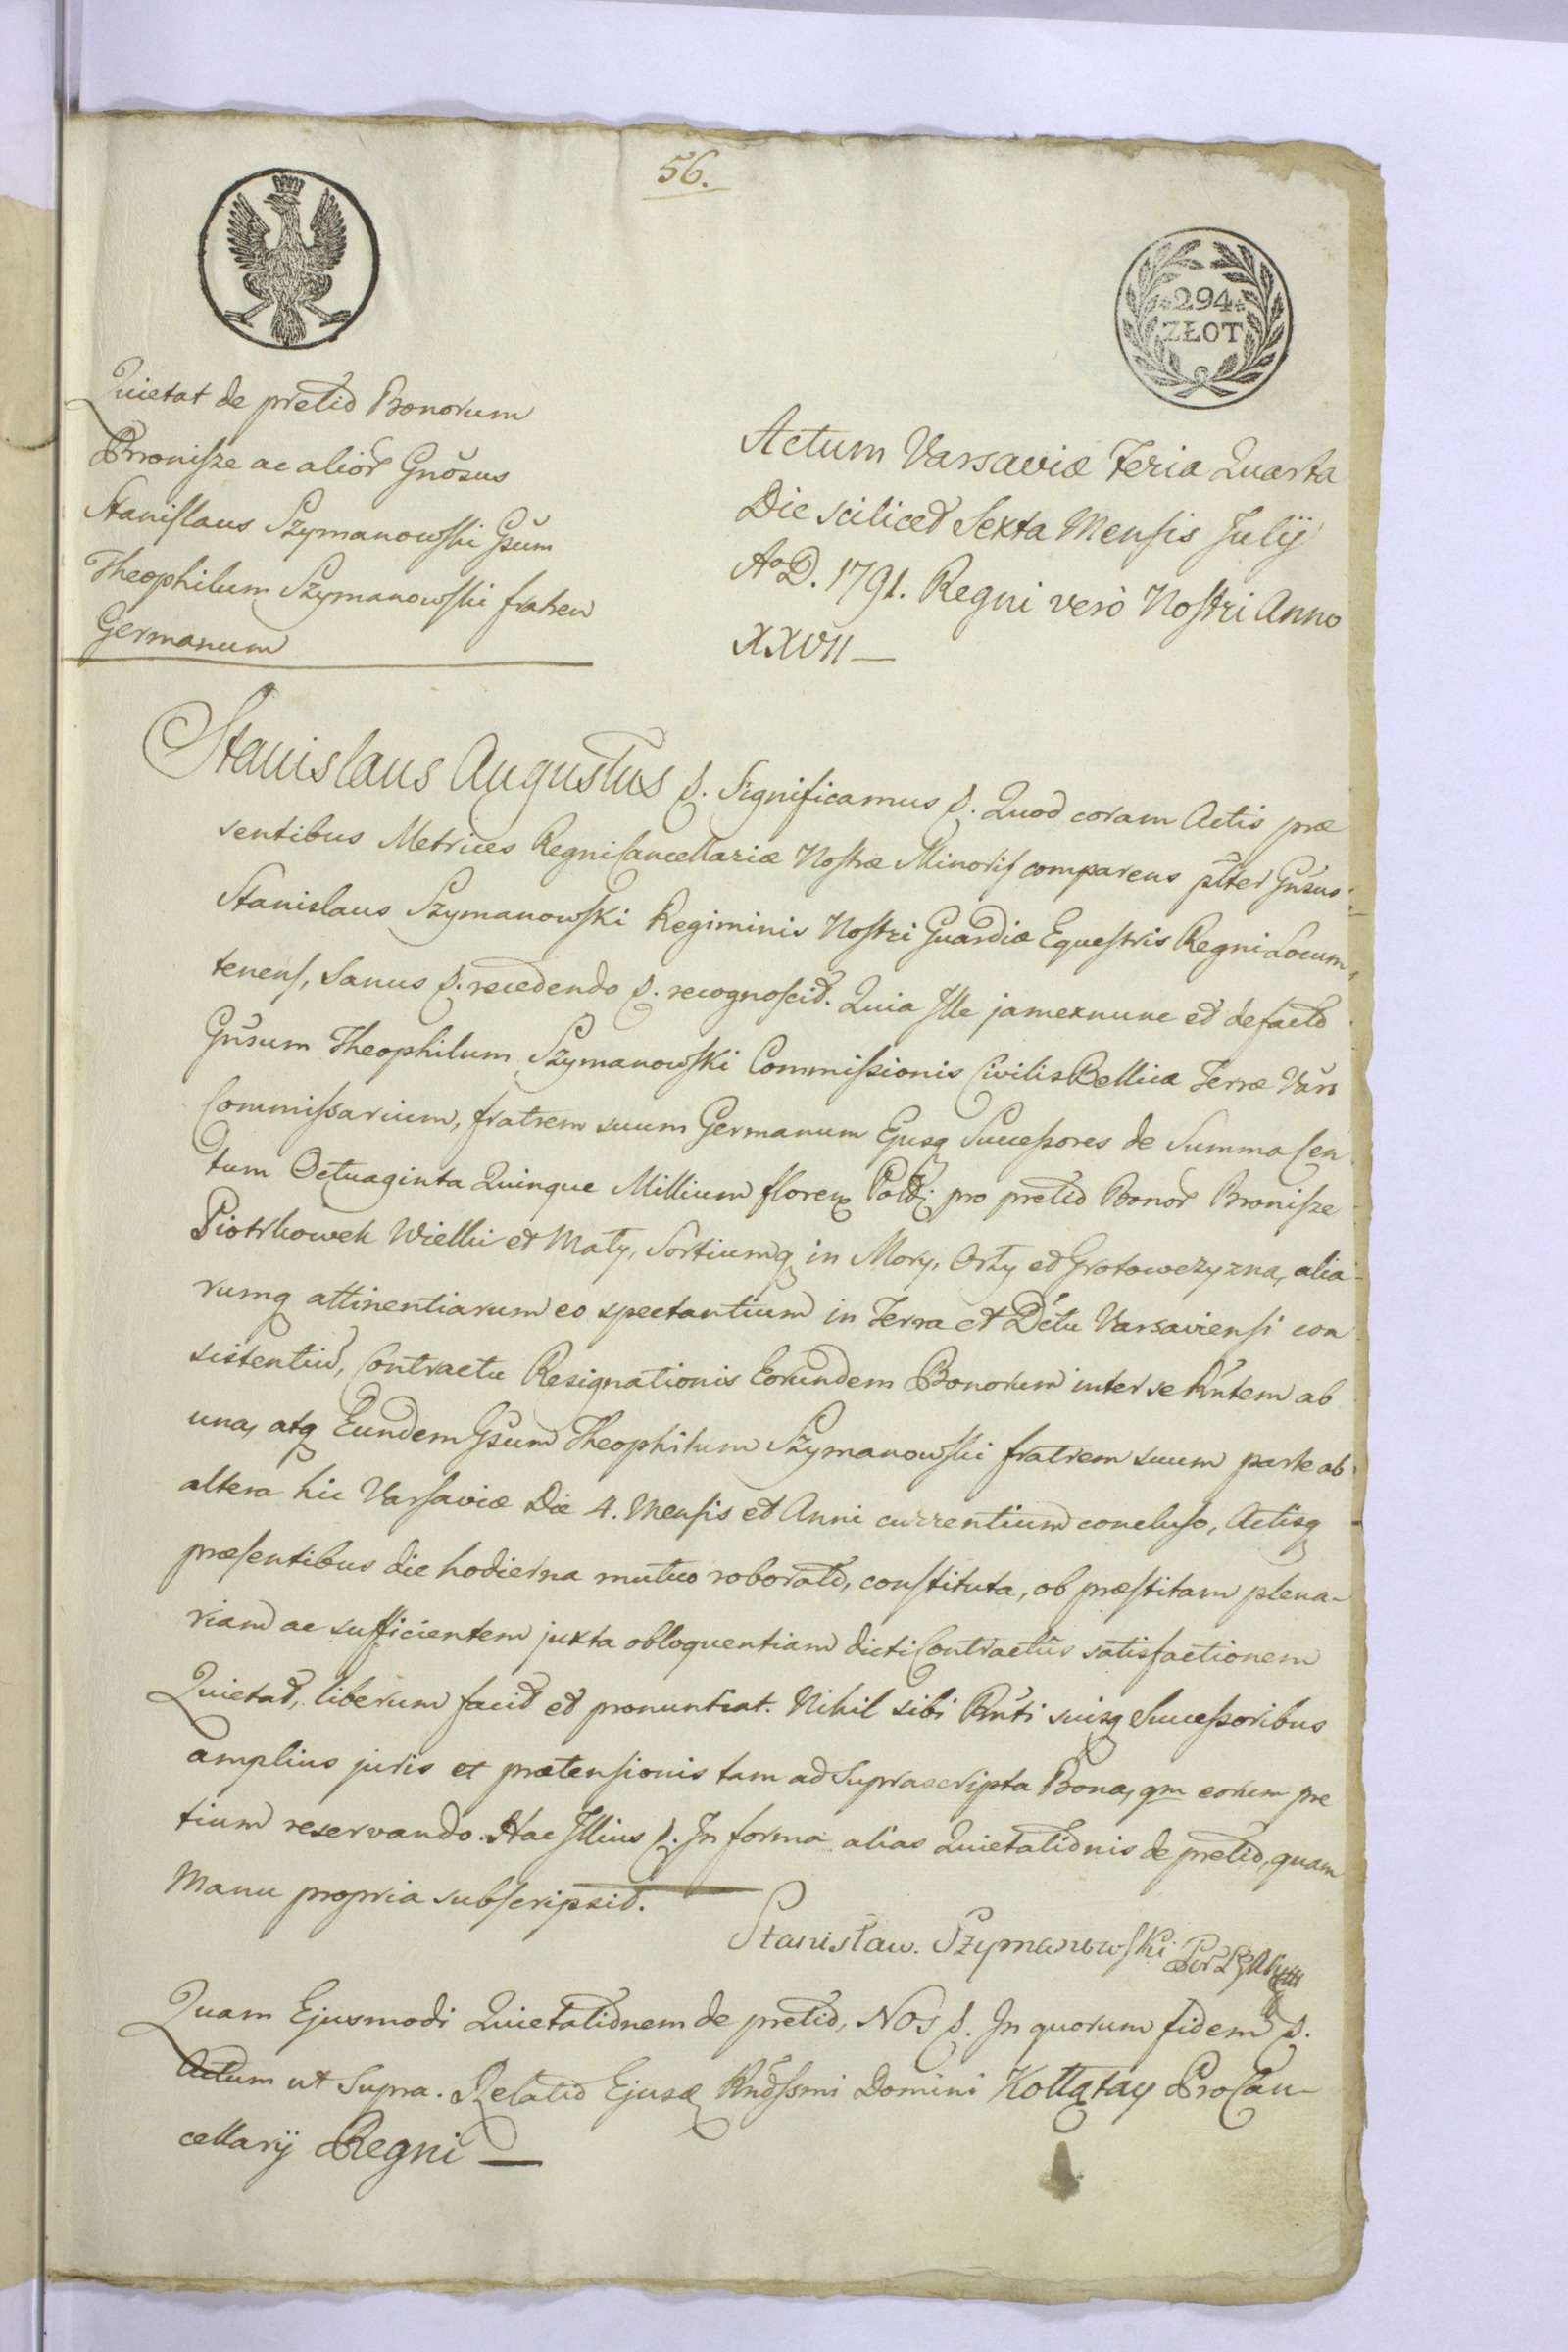 56.
294
ZŁOT
Quietat de pretio Bonorum
Broniſze ac alior Gnosus
Staniſlaus Szymanowſki Gsum
Theophilum Szymanowſki fratrem
Germanum
Actum Varsaviæ Feria Quarta
Die scilicet Sexta Menſis Julij
Aº D. 1791. Regni verò Noſtri Anno
XXVII —
Stanislaus Augustus &. Significamus &. Quod coram Actis præ
sentibus Metrices Regni Cancellariæ Noſtræ Minoriſ comparens plter Gnsus
Stanislaus Szymanowſki Regiminis Noſtri Guardiæ Equeſtris Regni Locum
tenenſ, Sanus &. recedendo &. recognoſcit. Quia Ille jam exnunc et defacto
Gnsum Theophilum Szymanowſki Commiſsionis Civilis Bellicæ Terræ Vars
Commiſsarium, fratrem suum Germanum Ejusq Succeſsores de Summa Cen
tum Octuaginta Quinque Millium floren Polb pro pretio Bonor Broniſze
Piotrkowek Wielki et Mały, Sortiumq in Mory, Orły et Grotowczyzna, alia
rumq attinentiarum eo spectantium in Terra et Dctu Varsavienſi con
sistentiu, Contractu Resignationis Eorundem Bonorum inter se Rntem ab
una, atq Eundem Gsum Theophilum Szymanowſki fratrem suum parte ab
altera hic Varſaviæ Die 4. Menſis et Anni currentium concluſo, Actisq
præſentibus die hodierna mutuo roborato, conſtituta, ob præſtitam plena-
riam ac sufficientem juxta obloquentiam dicti Contractûs satisfactionem
Quietat, liberum facit et pronuntiat. Nihil sibi Rnti suisq Succeſsoribus
amplius juris et prætenſionis tam ad Suprascripta Bona, qm eorum pre
tium reservando. Hac Illius &. In forma alias Quietationis de pretio, quam
Manu propria subſcripsit.
Stanisław. Szymanowſki
Quam Ejusmodi Quietationem de pretio, Nos &. In quorum fidem &.
Actum ut Supra. Relatio Ejusd Rndſsmi Domini Kołłątay ProCan-
cellarij Regni —